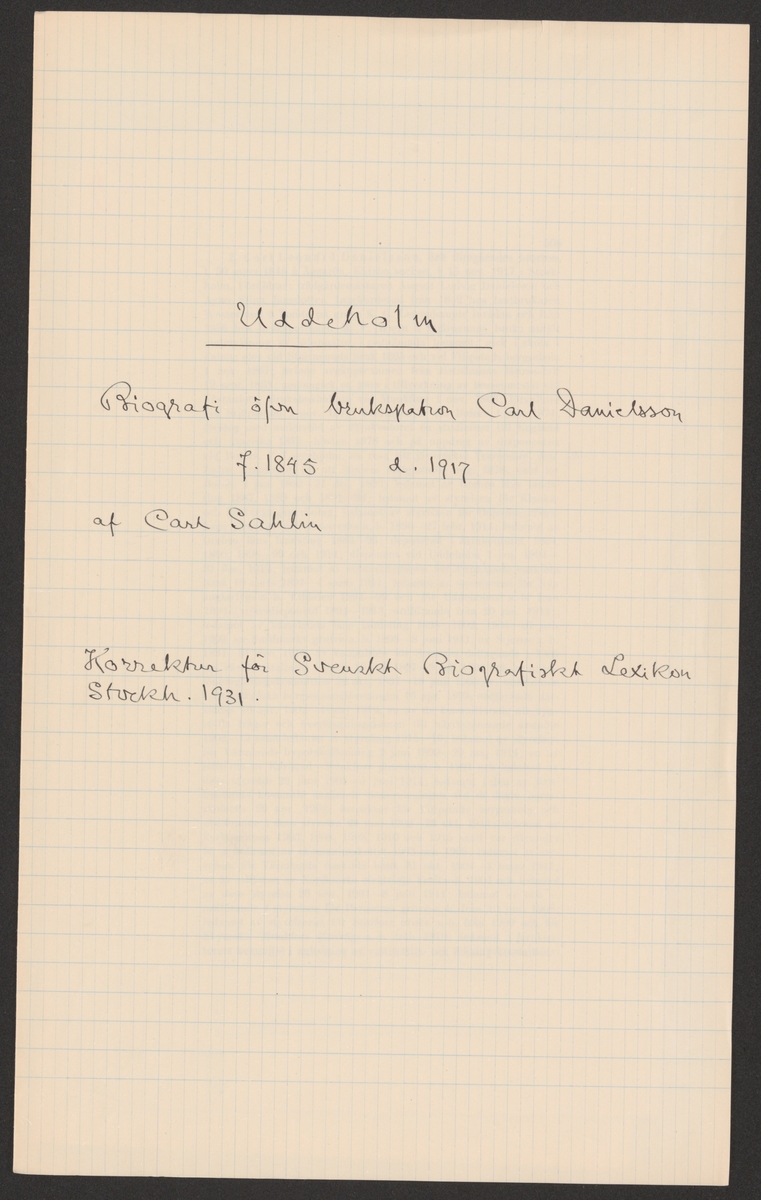 Uddeholm
Biografi öfver brukspatron Carl Danielsson
f. 1845 d. 1917
af Carl Sahlin
Korrektur för Svenskt Biografiskt Lexikon
Stockh. 1931.